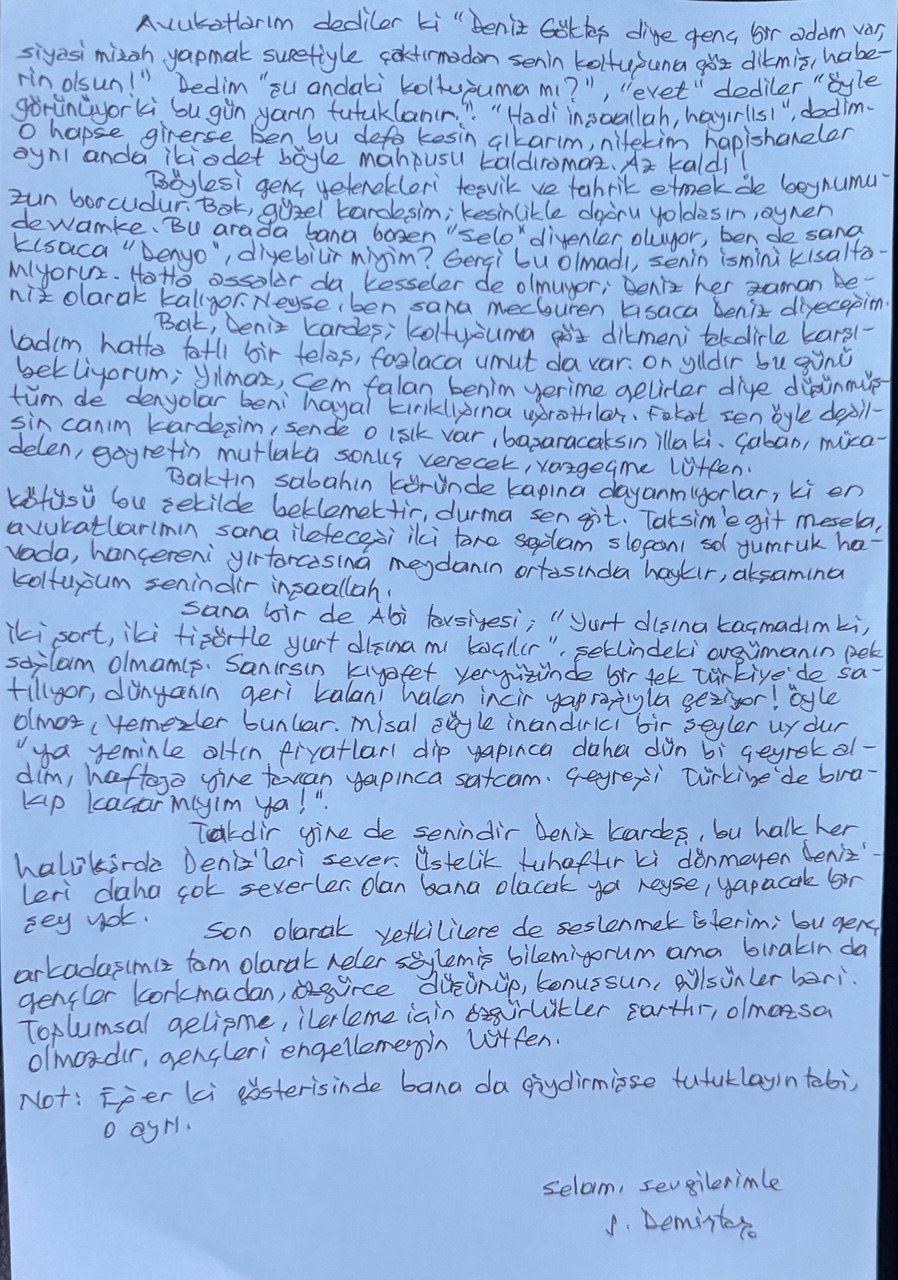 Avukatlarım dediler ki "Deniz Göktaş diye genç bir adam var,
siyasi mizah yapmak suretiyle çaktırmadan senin koltuğuna göz dikmiş, habe-
rin olsun!" Dedim "şu andaki koltuğuma mı?", "evet" dediler "öyle
görünüyor ki bu gün yarın tutuklanır." "Hadi inşaallah, hayırlısı", dedim.
O hapse girerse ben bu defa kesin çıkarım, nitekim hapishaneler
aynı anda iki adet böyle mahpusu kaldıramaz. Az kaldı!
Böylesi genç yetenekleri teşvik ve tahrik etmek de boynumu-
zun borcudur. Bak, güzel kardeşim; kesinlikle doğru yoldasın, aynen
dewamke. Bu arada bana bazen "Selo" diyenler oluyor, ben de sana
kısaca "Denyo", diyebilir miyim? Gerçi bu olmadı, senin ismini kısalta-
mıyoruz. Hatta assalar da kesseler de olmuyor; Deniz her zaman De-
niz olarak kalıyor. Neyse, ben sana mecburen kısaca Deniz diyeceğim.
Bak, Deniz kardeş; koltuğuma göz dikmeni takdirle karşı-
ladım hatta tatlı bir telaş, fazlaca umut da var. On yıldır bu günü
bekliyorum; Yılmaz, Cem falan benim yerime gelirler diye düşünmüş-
tüm de denyolar beni hayal kırıklığına uğrattılar. Fakat sen öyle değil-
sin canım kardeşim, sende o ışık var, başaracaksın illaki. Çaban, müca-
delen, gayretin mutlaka sonuç verecek, vazgeçme lütfen.
Baktın sabahın köründe kapına dayanmıyorlar, ki en
kötüsü bu şekilde beklemektir, durma sen git. Taksim'e git mesela,
avukatlarımın sana ileteceği iki tane sağlam sloganı sol yumruk ha-
vada, hançereni yırtarcasına meydanın ortasında haykır, akşamına
koltuğum senindir inşaallah.
Sana bir de Abi tavsiyesi; "Yurt dışına kaçmadım ki,
iki şort, iki tişörtle yurt dışına mı kaçılır". şeklindeki argümanın pek
sağlam olmamış. Sanırsın kıyafet yeryüzünde bir tek Türkiye'de sa-
tılıyor, dünyanın geri kalanı halen incir yaprağıyla geziyor! Öyle
olmaz, yemezler bunlar. Misal şöyle inandırıcı bir şeyler uydur
"ya yeminle altın fiyatları dip yapınca daha dün bi çeyrek al-
dım, haftaya yine tavan yapınca satcam. Çeyreği Türkiye'de bıra-
kıp kaçar mıyım ya!".
Takdir yine de senindir Deniz kardeş, bu halk her
halükarda Deniz'leri sever. Üstelik tuhaftır ki dönmeyen Deniz'-
leri daha çok severler. Olan bana olacak ya neyse, yapacak bir
şey yok.
Son olarak yetkililere de seslenmek isterim; bu genç
arkadaşımız tam olarak neler söylemiş bilemiyorum ama bırakın da
gençler korkmadan, özgürce düşünüp, konuşsun, gülsünler bari.
Toplumsal gelişme, ilerleme için özgürlükler şarttır, olmazsa
olmazdır, gençleri engellemeyin lütfen.
Not: Eğer ki gösterisinde bana da giydirmişse tutuklayın tabi,
o ayrı.
Selam, sevgilerimle
S. Demirtaş